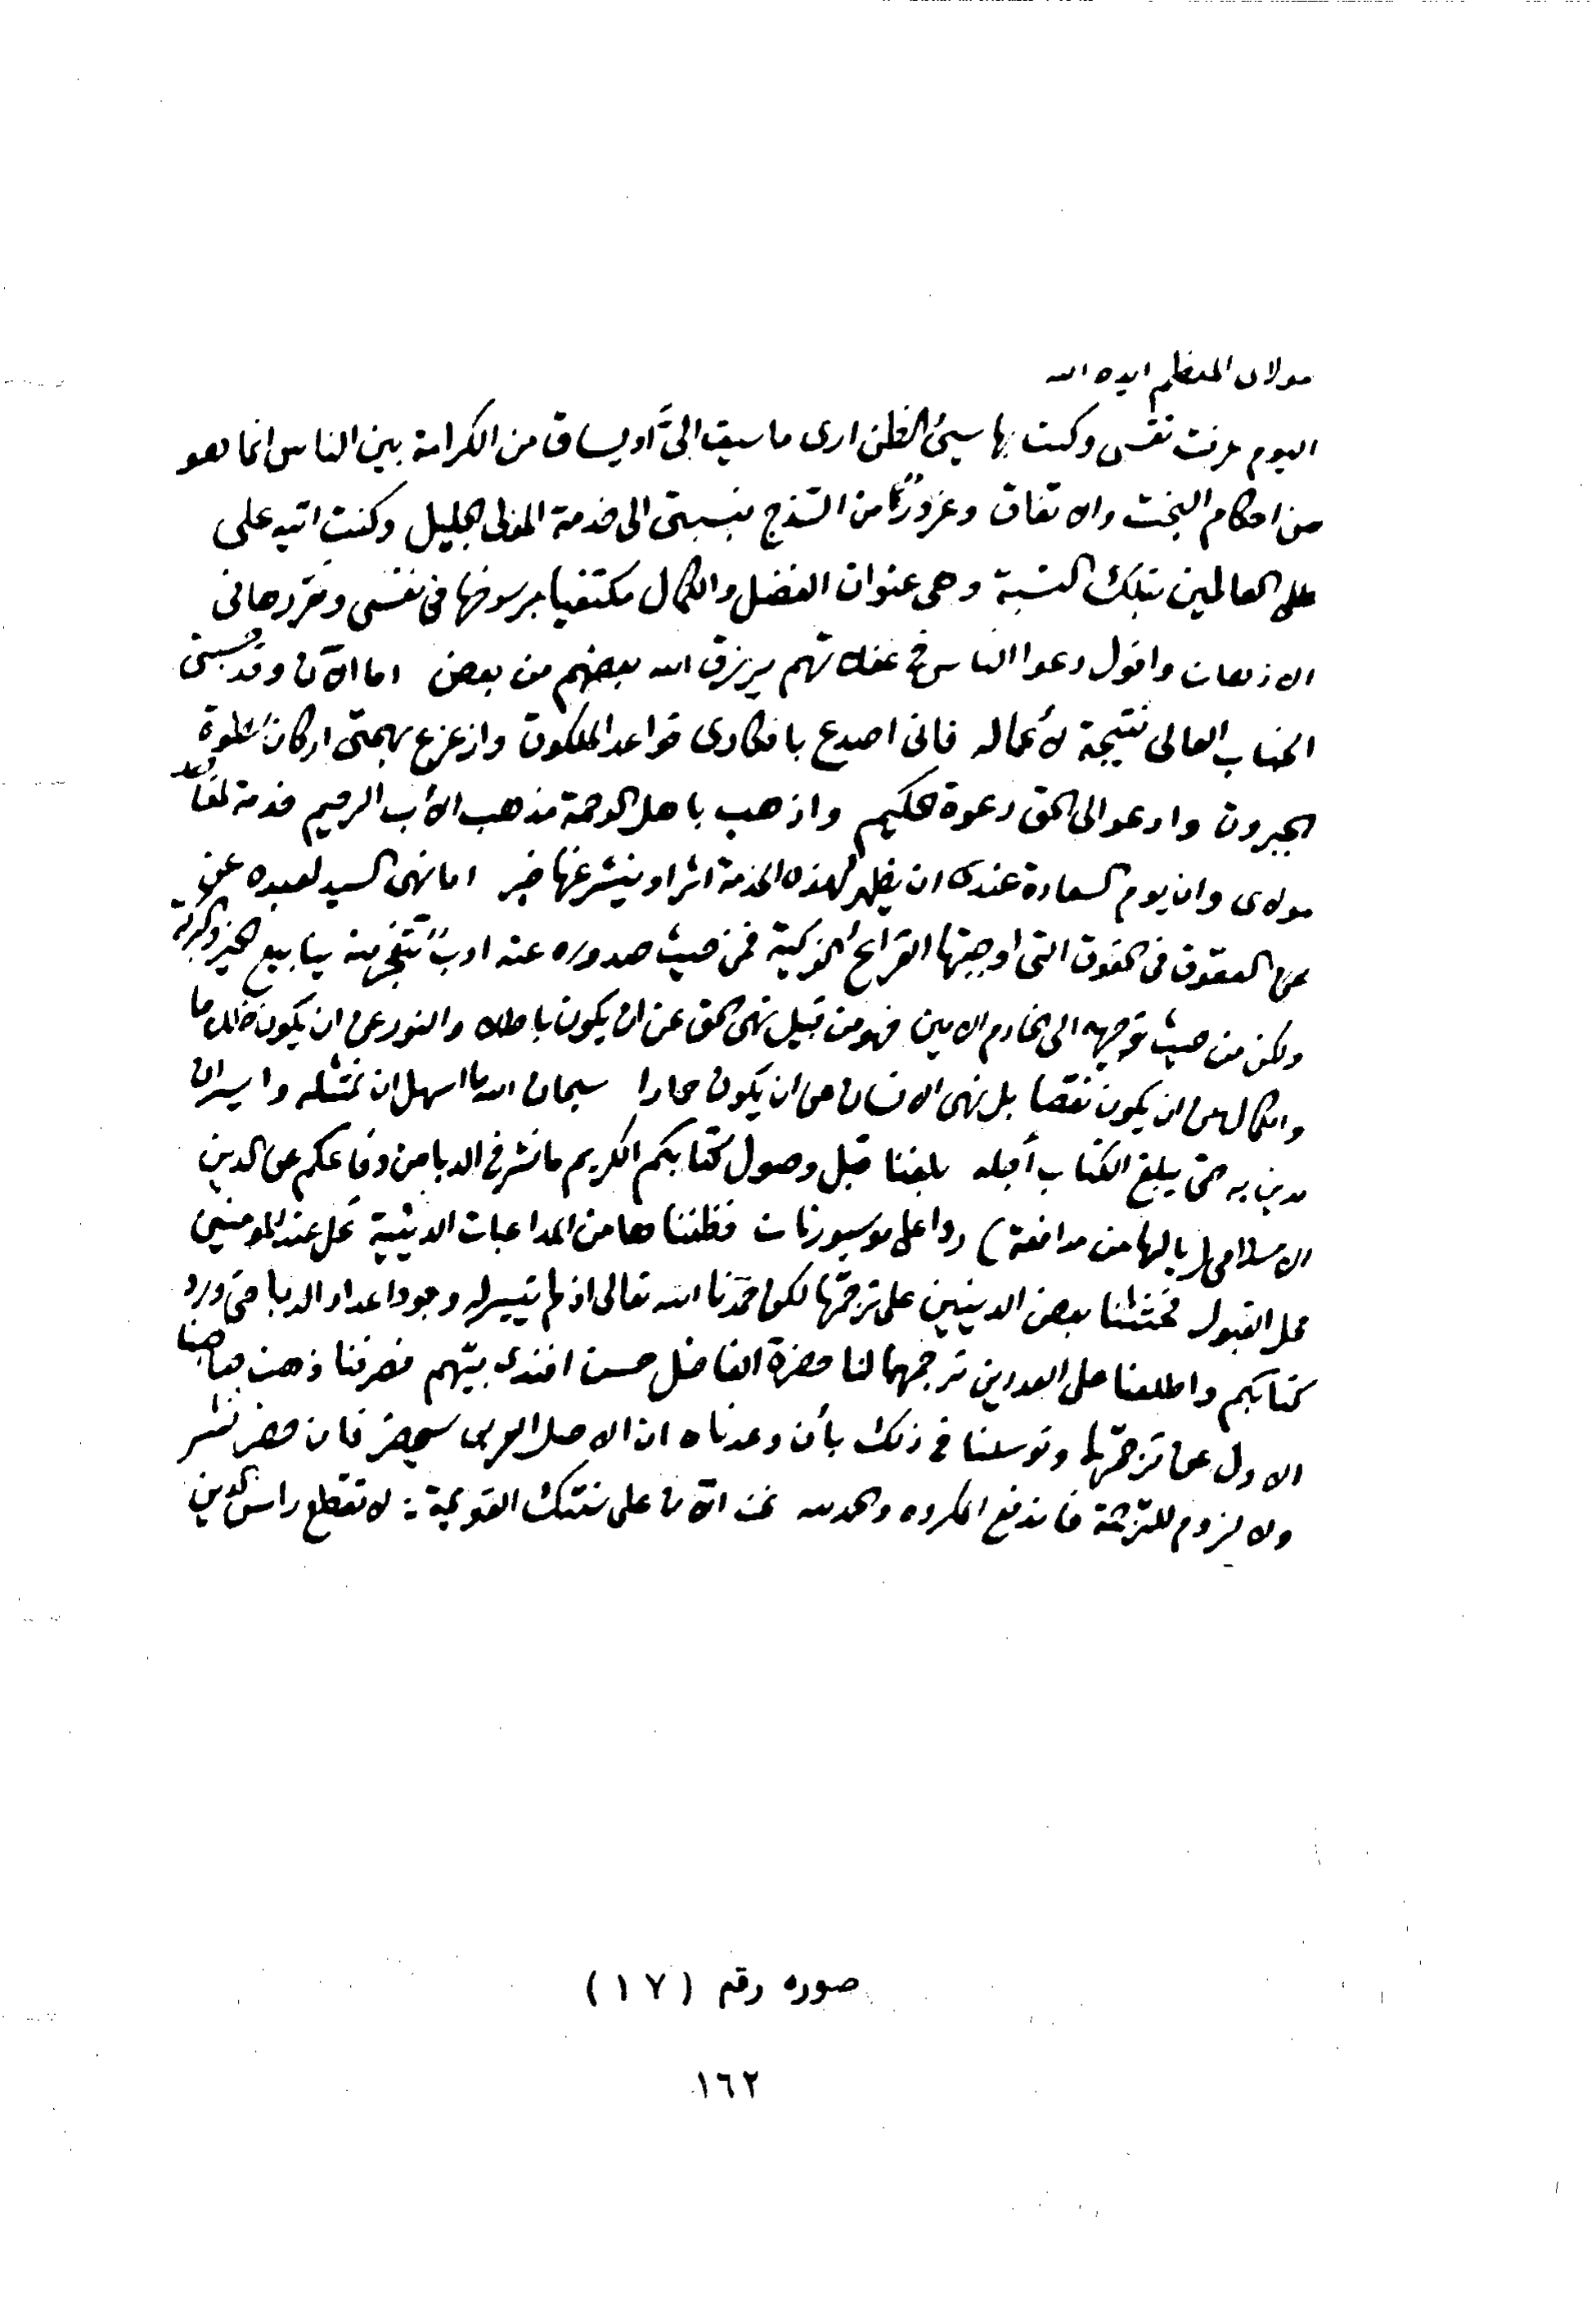 مولاى المعظم ايده الله
اليوم عرفت نفسى وكنت بها سيئ الظن ارى ما سيق الىَّ او يساق من الكرامة بين الناس انما هو
من احكام البخت والاتفاق وغرورًا من السذج بنسبتى الى خدمة المولى الجليل وكنت اتيه على
على العالمين بتلك النسبة وهى عنوان الفضل والكمال مكتفيا برسوخها فى نفسى وتقررها فى
الاذهان واقول دعوا الناس فى غفلاتهم يرزق الله بعضهم من بعض اما الآن وقد حسبنى
الجناب العالى نتيجة لأعماله فانى اصدع بافكارى قواعد الملكوت وازعزع بهمتى اركان سطوة
الجبروت وادعو الى الحق دعوة الحكيم واذهب باهل الرحمة مذهب الأب الرحيم خدمة لمقاصد
مولاى وان يوم السعادة عندى ان يظهر لهذه الخدمة اثر او ينشر عنها خبر اما نهى السيد لعبده عن
عن العقوق فى الحقوق التى اوجبتها القرائح الزكية فمن حيث صدوره عنه ادبٌ تتفجر منه ينابيع الخير والبركة
ولكن من حيث توجيهه الى الخادم الامين فهو من قبيل نهى الحق عن ان يكون باطلا والنور عن ان يكون ظلاما
والكمال عن ان يكون نقصا بل نهى الانسان عن ان يكون حمارا سبحان الله ما اسهل ان نمتثله وايسر ان
ندين به حتى يبلغ الكتاب أجله بلغنا قبل وصول كتابكم الكريم ما نشر فى الديبا من دفاعكم عن الدين
الاسلامى (يا لها من مدافعة) ردا على موسيو رنان فظنناها من المداعبات الدينية تحل عند المومنين
محل القبول فحثثنا بعض الدينيين على ترجمتها لكن حمدنا الله تعالى اذ لم يتيسر له وجود اعداد الديبا حتى ورد
كتابكم واطلعنا على العددين ترجمهما لنا حضرة الفاضل حسن افندى بيهم فصرفنا ذهن صاحبنا
الاول عن ترجمتها وتوسلنا فى ذلك بأن وعدناه ان الاصل العربى سيحضر فان حضر نشر
ولا لزوم للترجمة فاندفع المكروه والحمد لله نحن الآن على سنتك القويمة : لا تقطع راس الدين
صوره رقم (١٧)
١٦٢